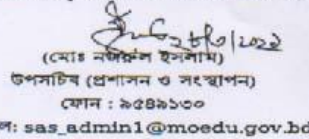 ২৮/৩/২০২২
(মোঃ নজরুল ইসলাম)
উপসচিব (প্রশাসন ও সংস্থাপন)
ফোন : ৯৫৪৯১৩০
ল: sas_admin1@moedu.gov.bd